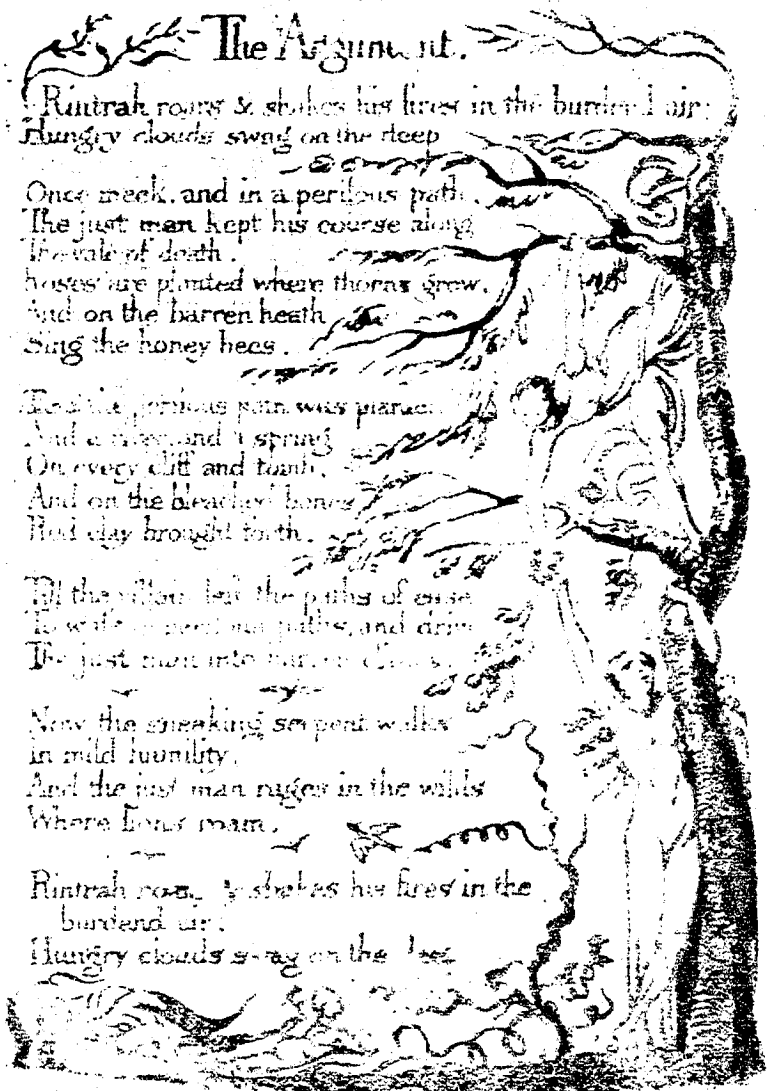 The Argument.
Rintrah roars & shakes his fires in the burdend air;
Hungry clouds swag on the deep
Once meek, and in a perilous path,
The just man kept his course along
The vale of death.
Roses are planted where thorns grow,
And on the barren heath
Sing the honey bees.
Then the perilous path was planted:
And a river, and a spring
On every cliff and tomb;
And on the bleached bones
Red clay brought forth.
Till the villain left the paths of ease
To walk in perilous paths, and drive
The just man into barren climes.
Now the sneaking serpent walks
In mild humility.
And the just man rages in the wilds
Where lions roam.
Rintrah roars & shakes his fires in the
burdend air;
Hungry clouds swag on the deep